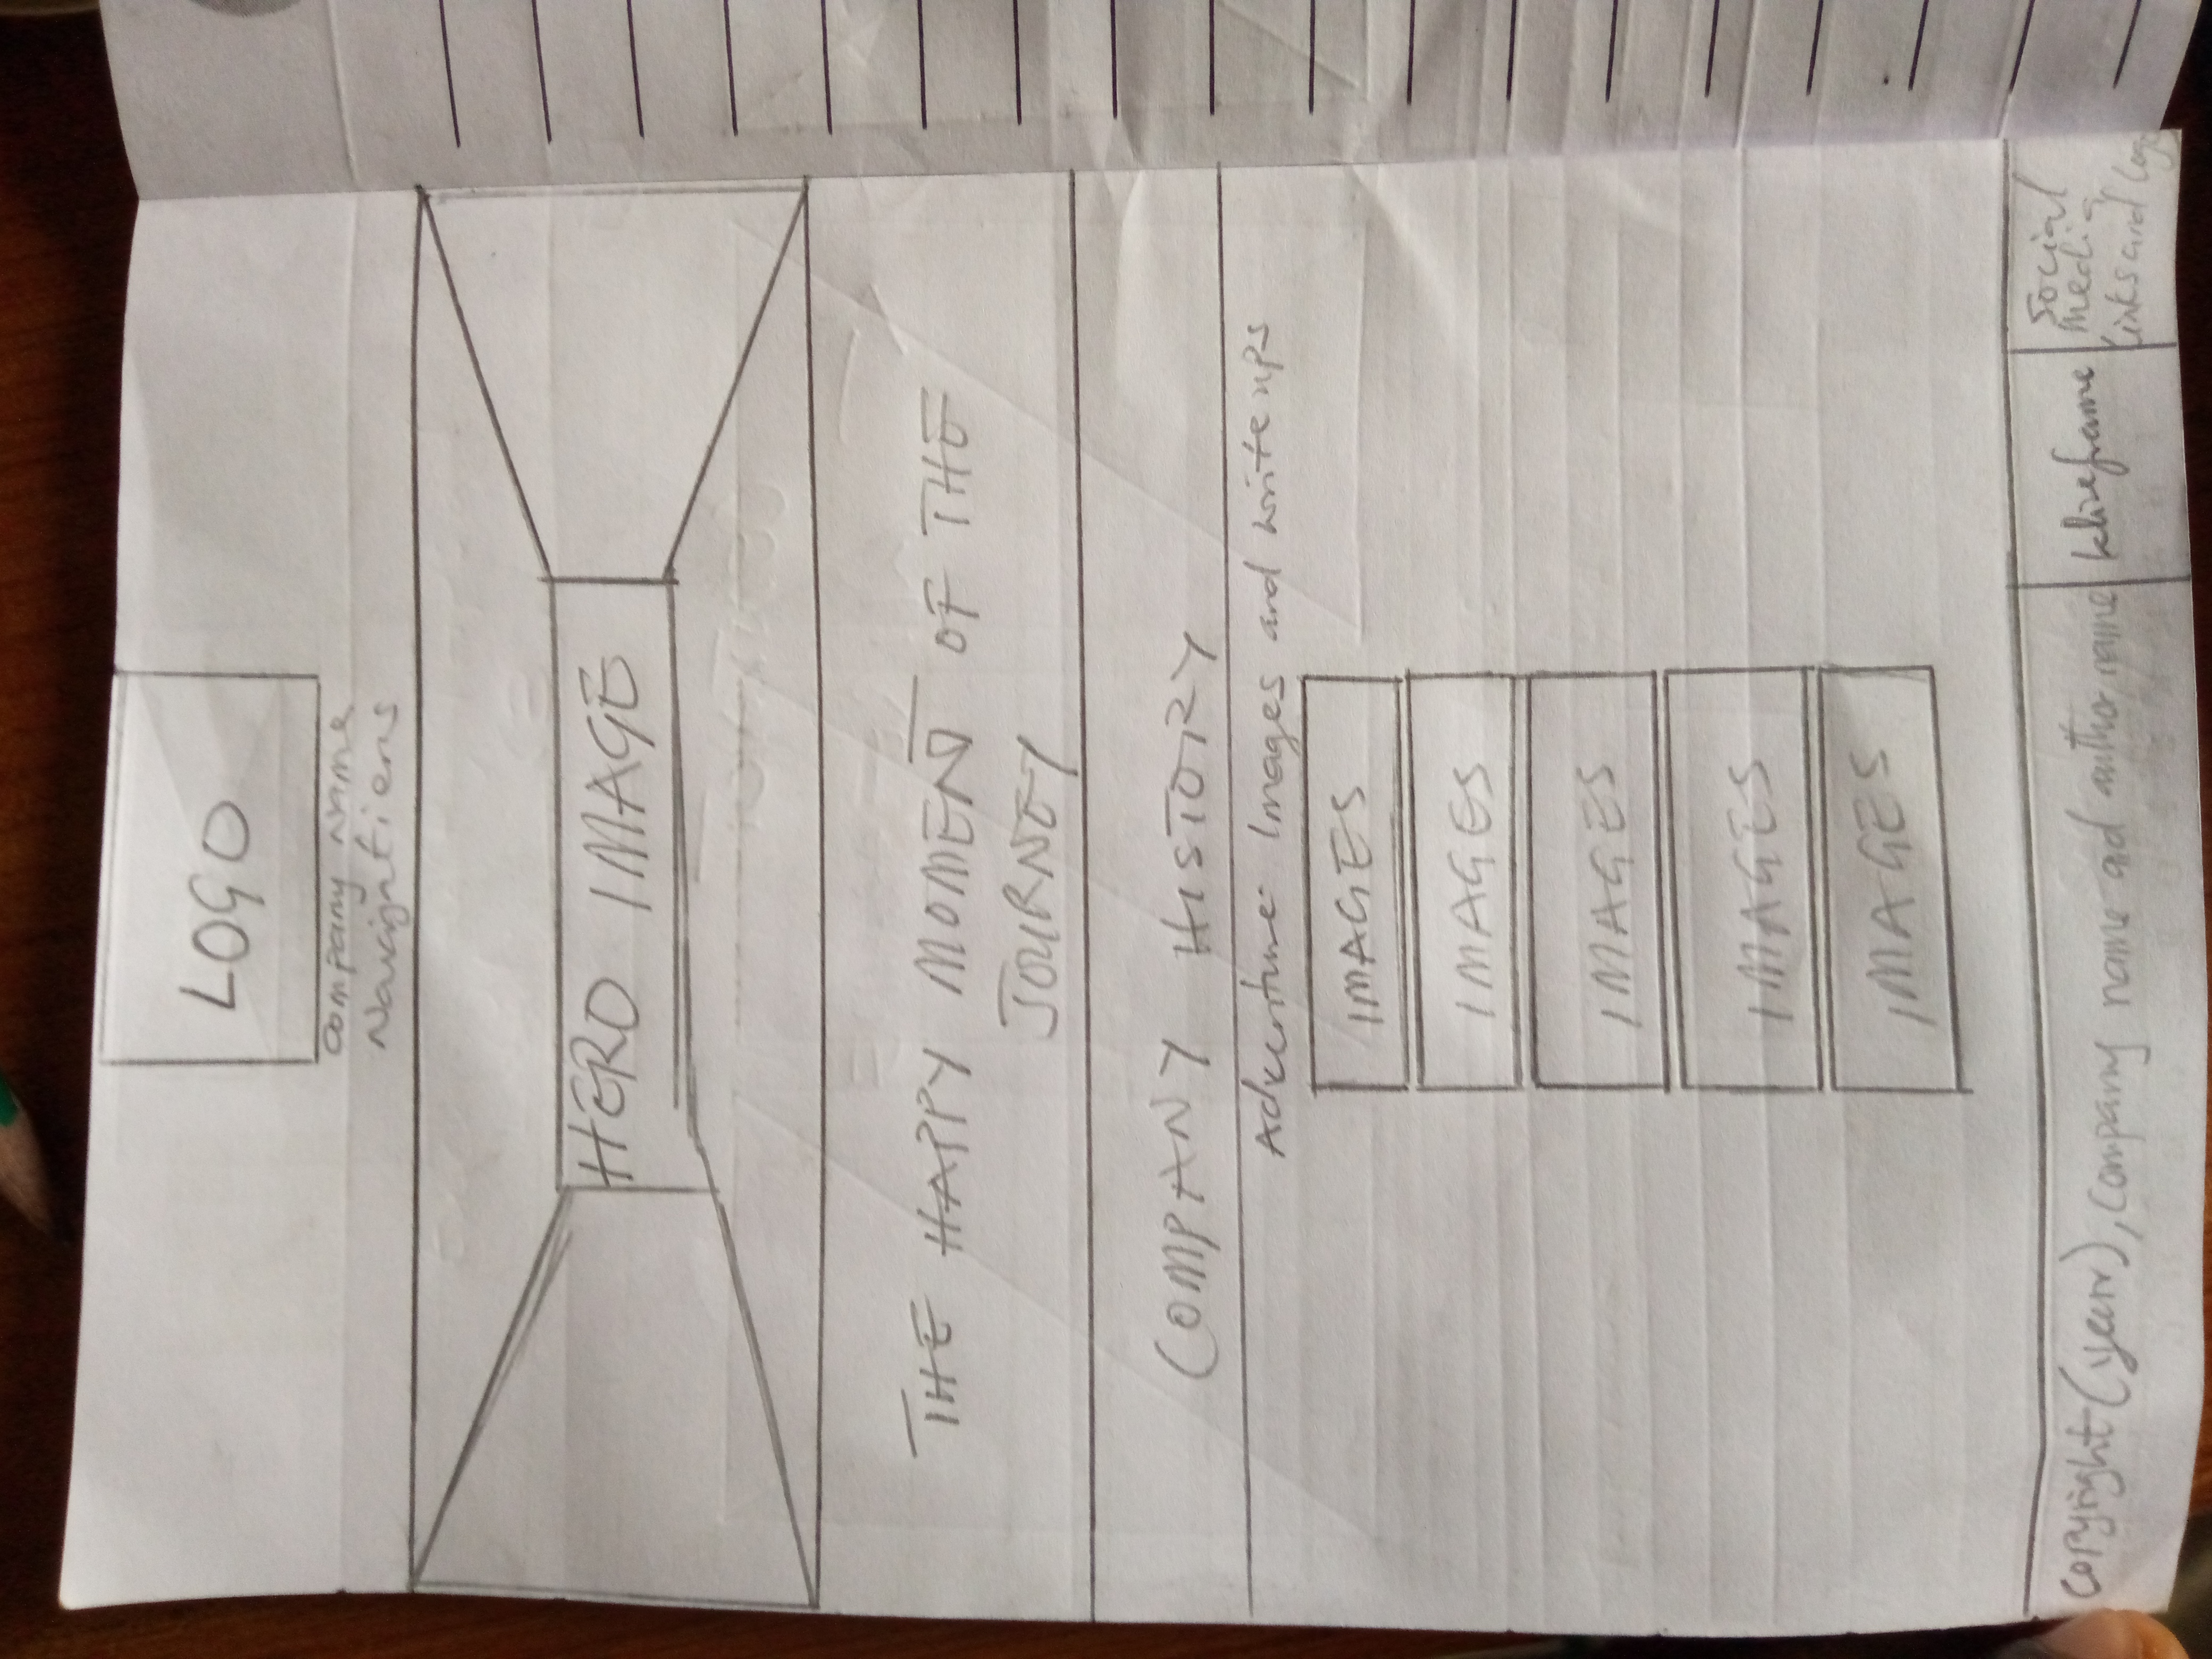 LOGO
Company name
Navigntiens
HERO IMAGE
THE HAPPY MOMENT OF THE
JOURNEY
COMPANY HISTORY
Adventure Images and write ups
IMAGES
IMAGES
IMAGES
IMAGES
IMAGES
Copyright (year), Company name and author name
Wireframe
Social
media
links and